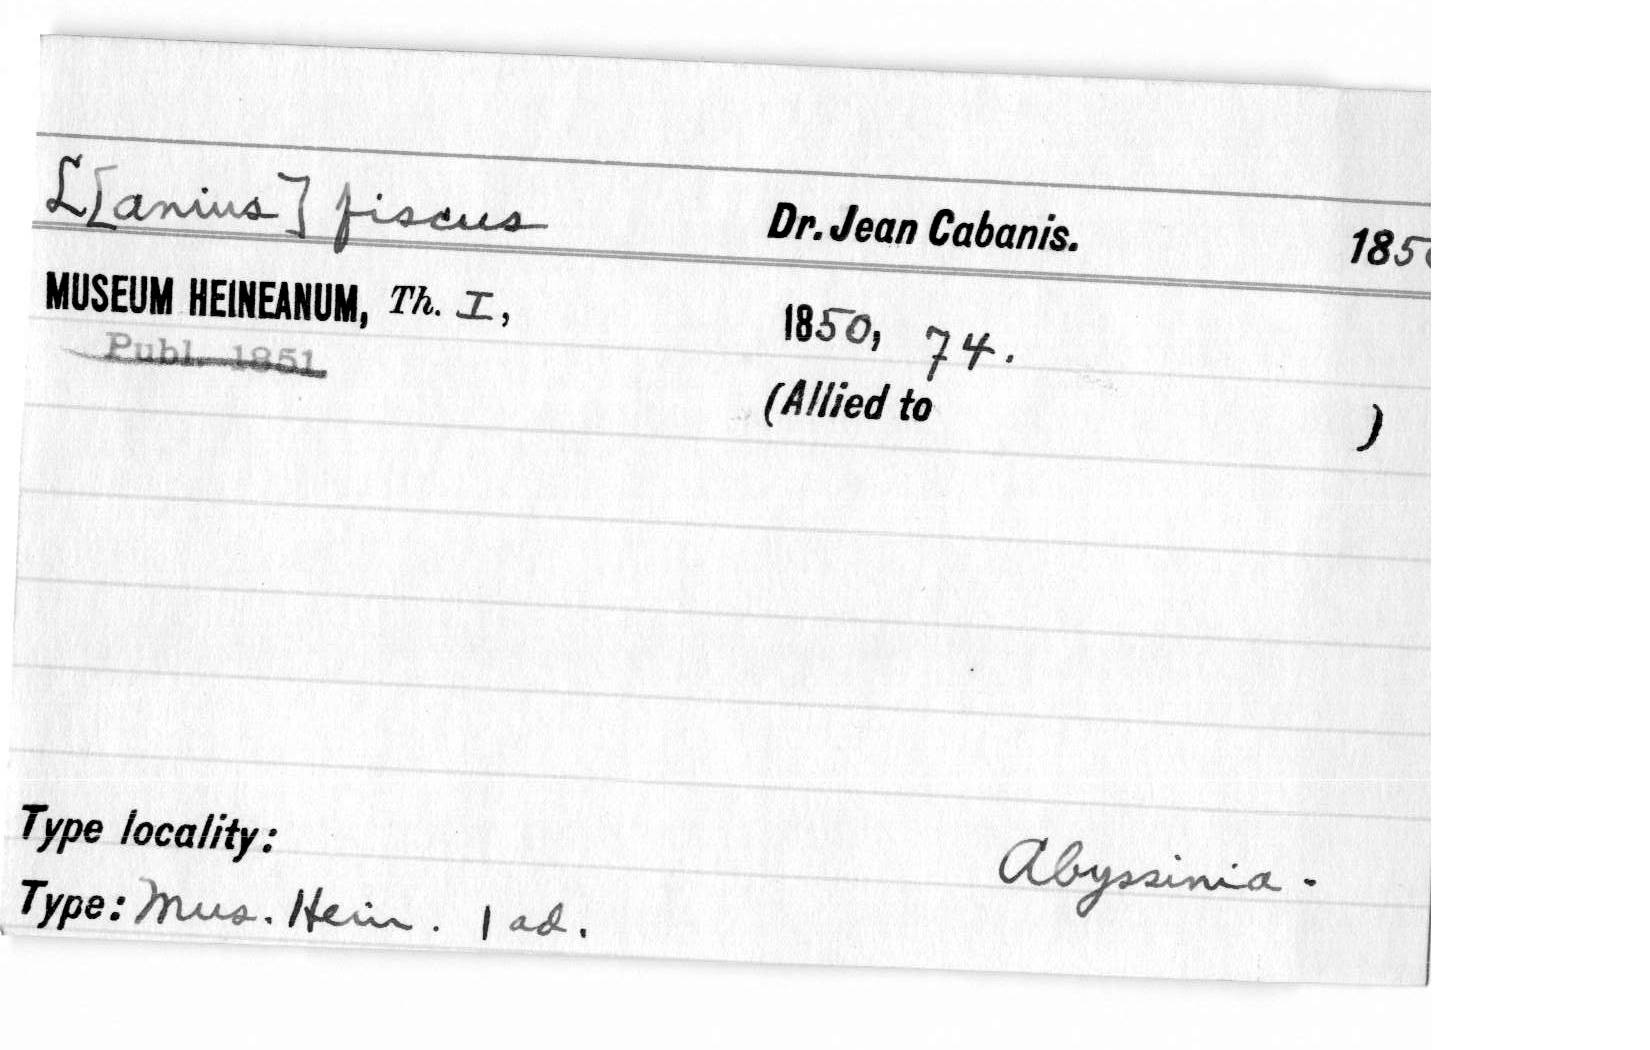 L[anius] fiscus Dr. Jean Cabanis. 185
MUSEUM HEINEANUM, Th. I, 1850, 74.
Publ. 1851
(Allied to )
Type locality: Abyssinia.
Type: Mus. Hein. 1 ad.